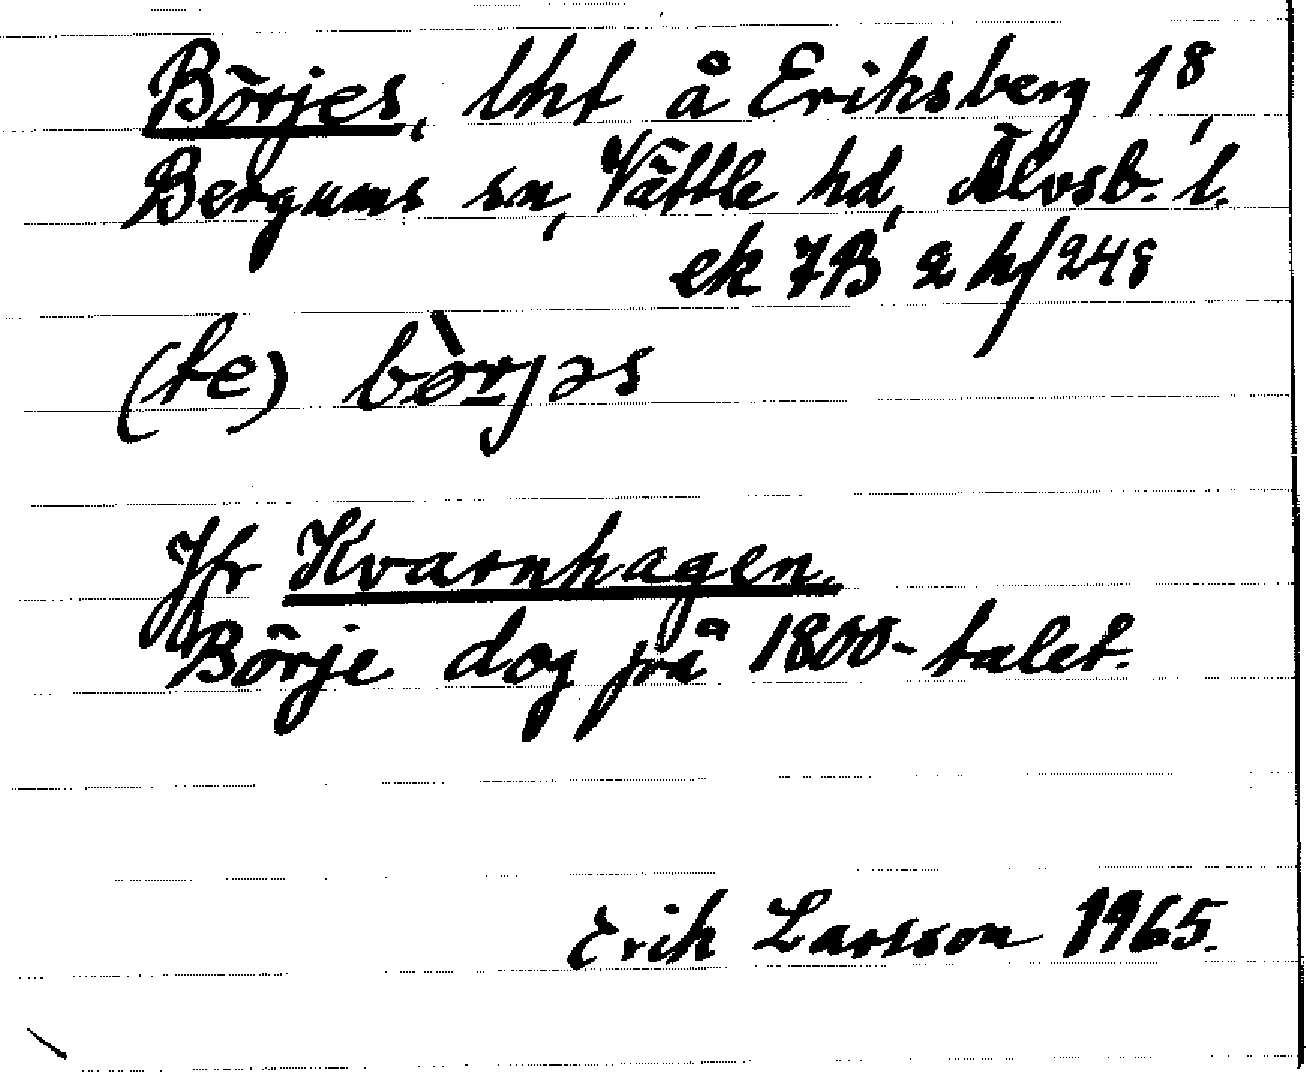 Börjes, lht å Eriksberg 1⁸,
Bergums sn, Vättle hd, Älvsb. l.
ek 7B 2 h/248
(te) bòrjəs
Jfr Kvarnhagen.
Börje dog på 1800-talet.
Erik Larsson 1965.